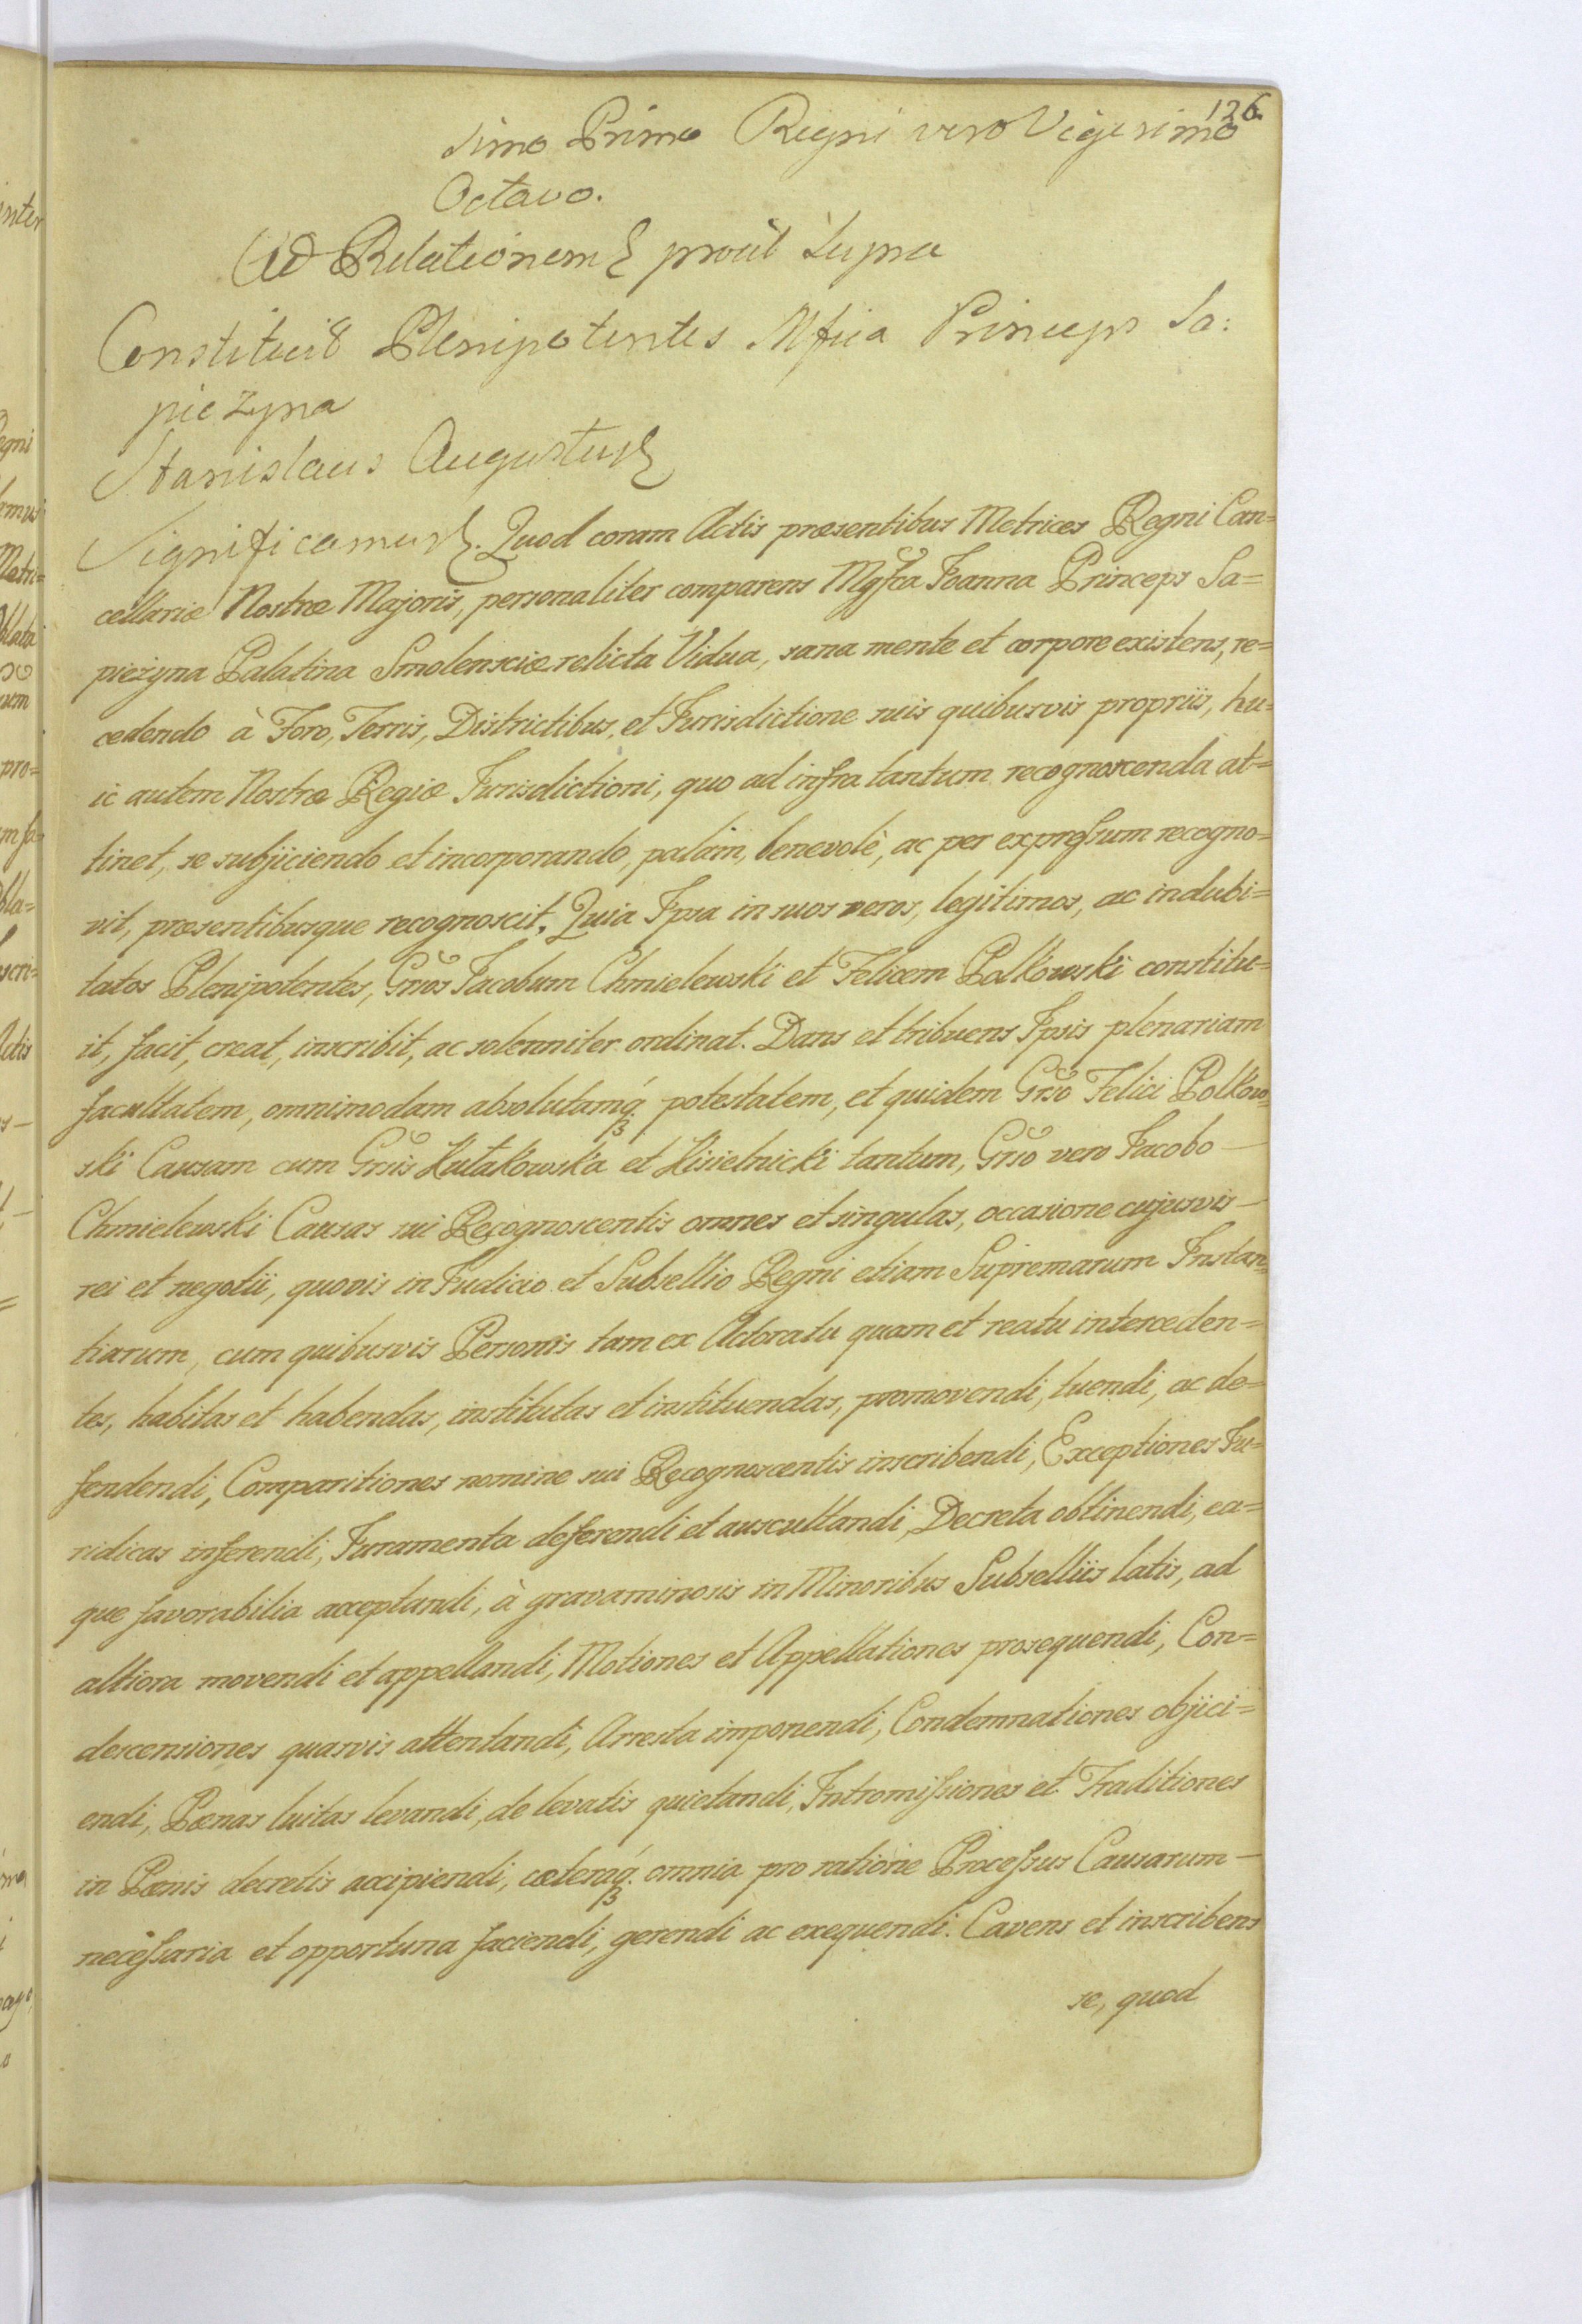 126.
simo Primo Regni vero Vigesimo
Octavo.
Ad Relationem prout supra
Constituit Plenipotentes Mfica Princeps Sa:
pieżyna
Stanislaus Augustus
Significamus. Quod coram Actis præsentibus Metrices Regni Can=
cellariæ Nostræ Majoris, personaliter comparens Mgfca Joanna Princeps Sa=
pieżyna Palatina Smolensciæ relicta Vidua, sana mente et corpore existens, re=
cedendo à Foro, Terris, Districtibus, et Jurisdictione suis quibusvis propriis, hu=
ic autem Nostræ Regiæ Jurisdictioni, quo ad infra tantum recognoscenda at=
tinet, se subjiciendo et incorporando, palàm, benevolè, ac per expressum recogno=
vit, præsentibusque recognoscit. Quia Ipsa in suos veros, legitimos, ac indubi=
tatos Plenipotentes, Gnos Jacobum Chmielewski et Felicem Polkowski constitu=
it, facit, creat, inscribit, ac solenniter ordinat. Dans et tribuens Ipsis plenariam
facultatem, omnimodam absolutamq́ potestatem, et quidem Gnso Felici Polkow=
ski Causam cum Gnsis Kutakowska et Kisielnicki tantum, Gnso vero Jacobo —
Chmielewski Causas sui Recognoscentis omnes et singulas, occasione cujusvis —
rei et negotii, quovis in Judicio et Subsellio Regni etiam Supremarum Instan=
tiarum, cum quibusvis Personis tam ex Actoratu quam et reatu interceden=
tes, habitas et habendas, institutas et instituendas, promovendi, tuendi, ac de=
fendendi, Comparitiones nomine sui Recognoscentis inscribendi, Exceptiones Ju=
ridicas inferendi, Juramenta deferendi et auscultandi, Decreta obtinendi, ea=
que favorabilia acceptandi, à gravaminosis in Minoribus Subselliis latis, ad
altiora movendi et appellandi, Motiones et Appellationes prosequendi, Con=
descensiones quasvis attentandi, Arresta imponendi, Condemnationes objici=
endi, Pœnas luitas levandi, de levatis quietandi, Intromissiones et Traditiones
in Pœnis decretis accipiendi, cæteraq́ omnia pro ratione Processus Causarum —
necessaria et opportuna faciendi, gerendi ac exequendi. Cavens et inscribens
se, quod